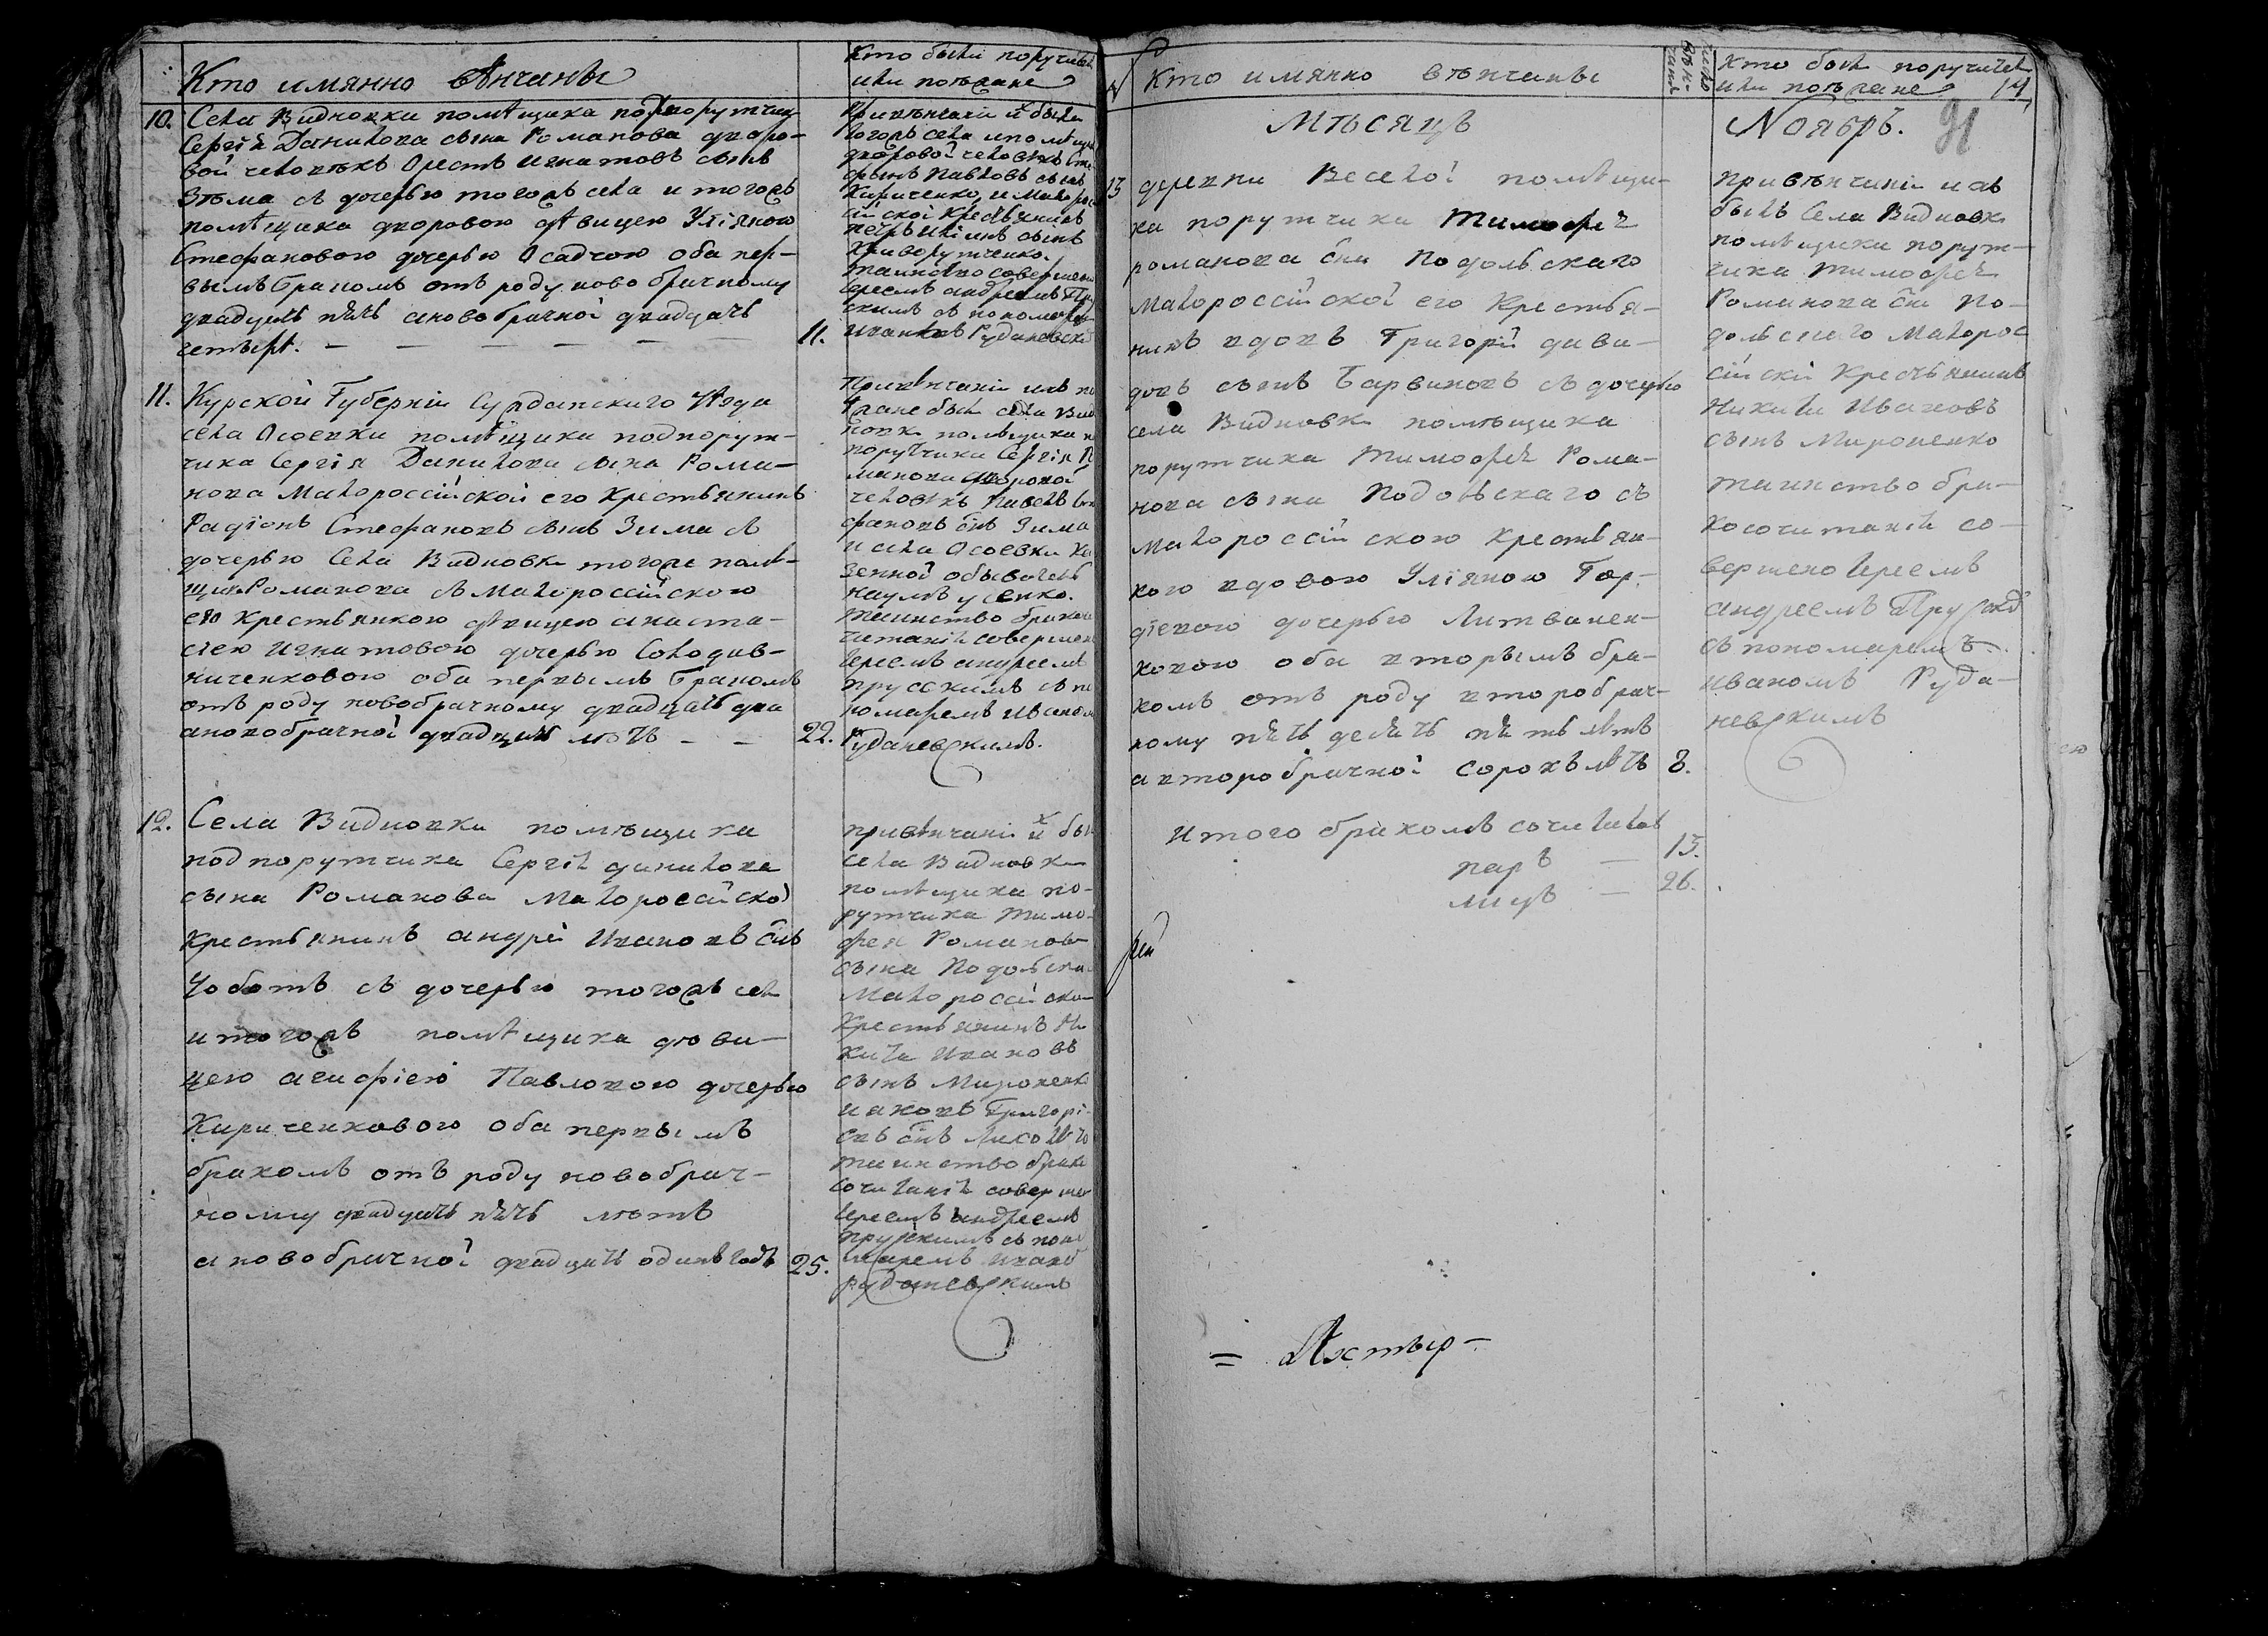 Кто имянно вѣнчаны
Кто были поручител
или поѣзжане
10. Села Видновки помѣщика подпорутчика
Сергія Данилова сына Романова дворо-
вой человѣкъ Орестъ Игнатовъ сынъ
Зѣма съ дочерью тогожъ села и тогожъ
помѣщика дворовою дѣвицею Уліяною
Стефановою дочерью Осадчою оба пер-
вымъ бракомъ отъ роду новобрачному
двадцать пять а новобрачной двадцать
четыре.
11.
Привѣнчаніи ихъ были
тогожъ села и помѣщика
дворовой человѣкъ
Павловъ сынъ
Кириченко, и Малорос
сійской крестьянинъ
сынъ
Криворутченко.
таинство совершено
Иереемъ Андреемъ Пру
скимъ съ пономарем
Иваномъ Руданевски
11. Курской Губерніи Суджанскаго уѣзда
села Осоевки помѣщика подпорут-
чика Сергія Данилова сына Рома-
нова Малороссійской его крестьянинъ
Радіонъ Стефановъ сынъ Зима съ
дочерью Села Видновки тогоже помѣ-
щика Романова съ Малороссійскою
его крестьянкою дѣвицею Анаста-
сіею Игнатовою дочерью Солодов-
ниченковою оба первымъ бракомъ
отъ роду новобрачному двадцать два
а новобрачной двадцать лѣтъ
22.
Привѣнчаніи ихъ по
ѣзжане были села Вид
новки помѣщика под
порутчика Сергія Ро
манова дворовой
человѣкъ Павелъ Сте
фановъ снъ Зима
и села Осоевки Ка
зенной обыватель
Наумъ Усенко.
таинство бракосо
читанія совершено
Иереемъ Андреемъ
Прусскимъ съ по
номаремъ Иваном
Руданевскимъ.
12. Села Видновки помѣщика
подпорутчика Сергія Данилова
сына Романова Малороссійской
крестьянинъ Андрей Ивановъ снъ
Чоботъ съ дочерью тогожъ села
и тогожъ помѣщика дѣви-
цею Агафіею Павловою дочерью
Кириченковою оба первымъ
бракомъ отъ роду новобрач-
ному двадцать пять лѣтъ
а новобрачной двадцать одинъ годъ
25.
привѣнчаніи ихъ были
села Видновки
помѣщика по-
рутчика Тимо-
фея Романова
сына Подольска
Малороссійской
крестьянинъ Ни
кита Ивановъ
сынъ Мироненко
и Яковъ Григорі-
евъ снъ
таинство брако
сочитанія совершено
Иереемъ Андреемъ
Прускимъ съ поно
маремъ Иваном
Руданевскимъ
Кто имянно вѣнчаны
число
вѣн-
чаныхъ
Кто были поручител
или поѣзжане
14
Мѣсяцъ
Ноябрь.
91
13 деревни Веселой помѣщи-
ка порутчика Тимофея
Романова сна Подольскаго
Малороссійской его крестья-
нинъ вдовъ Григорій Дави-
довъ сынъ Барвиновъ съ дочерью
села Видновки помѣщика
порутчика Тимофея Рома-
нова сына Подольскаго съ
Малороссійскою крестьян-
кою вдовою Уліяною Гор-
діевою дочерью Литвинен-
ковою оба вторымъ бра-
комъ отъ роду второбрач-
ному пять десять пять лѣтъ
а второбрачной сорокъ лѣтъ
8.
привѣнчаніи ихъ
былъ Села Видновки
помѣщика порут-
чика Тимофея
Романова сна По-
дольскаго Малорос
сійскій крестьянинъ
Никита Ивановъ
сынъ Мироненко
таинство бра-
косочитанія со-
вершено Иереемъ
Андреемъ Прускимъ
съ пономаремъ
Иваномъ Руда-
невскимъ
Итого бракомъ сочитаваных
паръ — 13.
лицъ — 26.
рей
= Ахтыр-